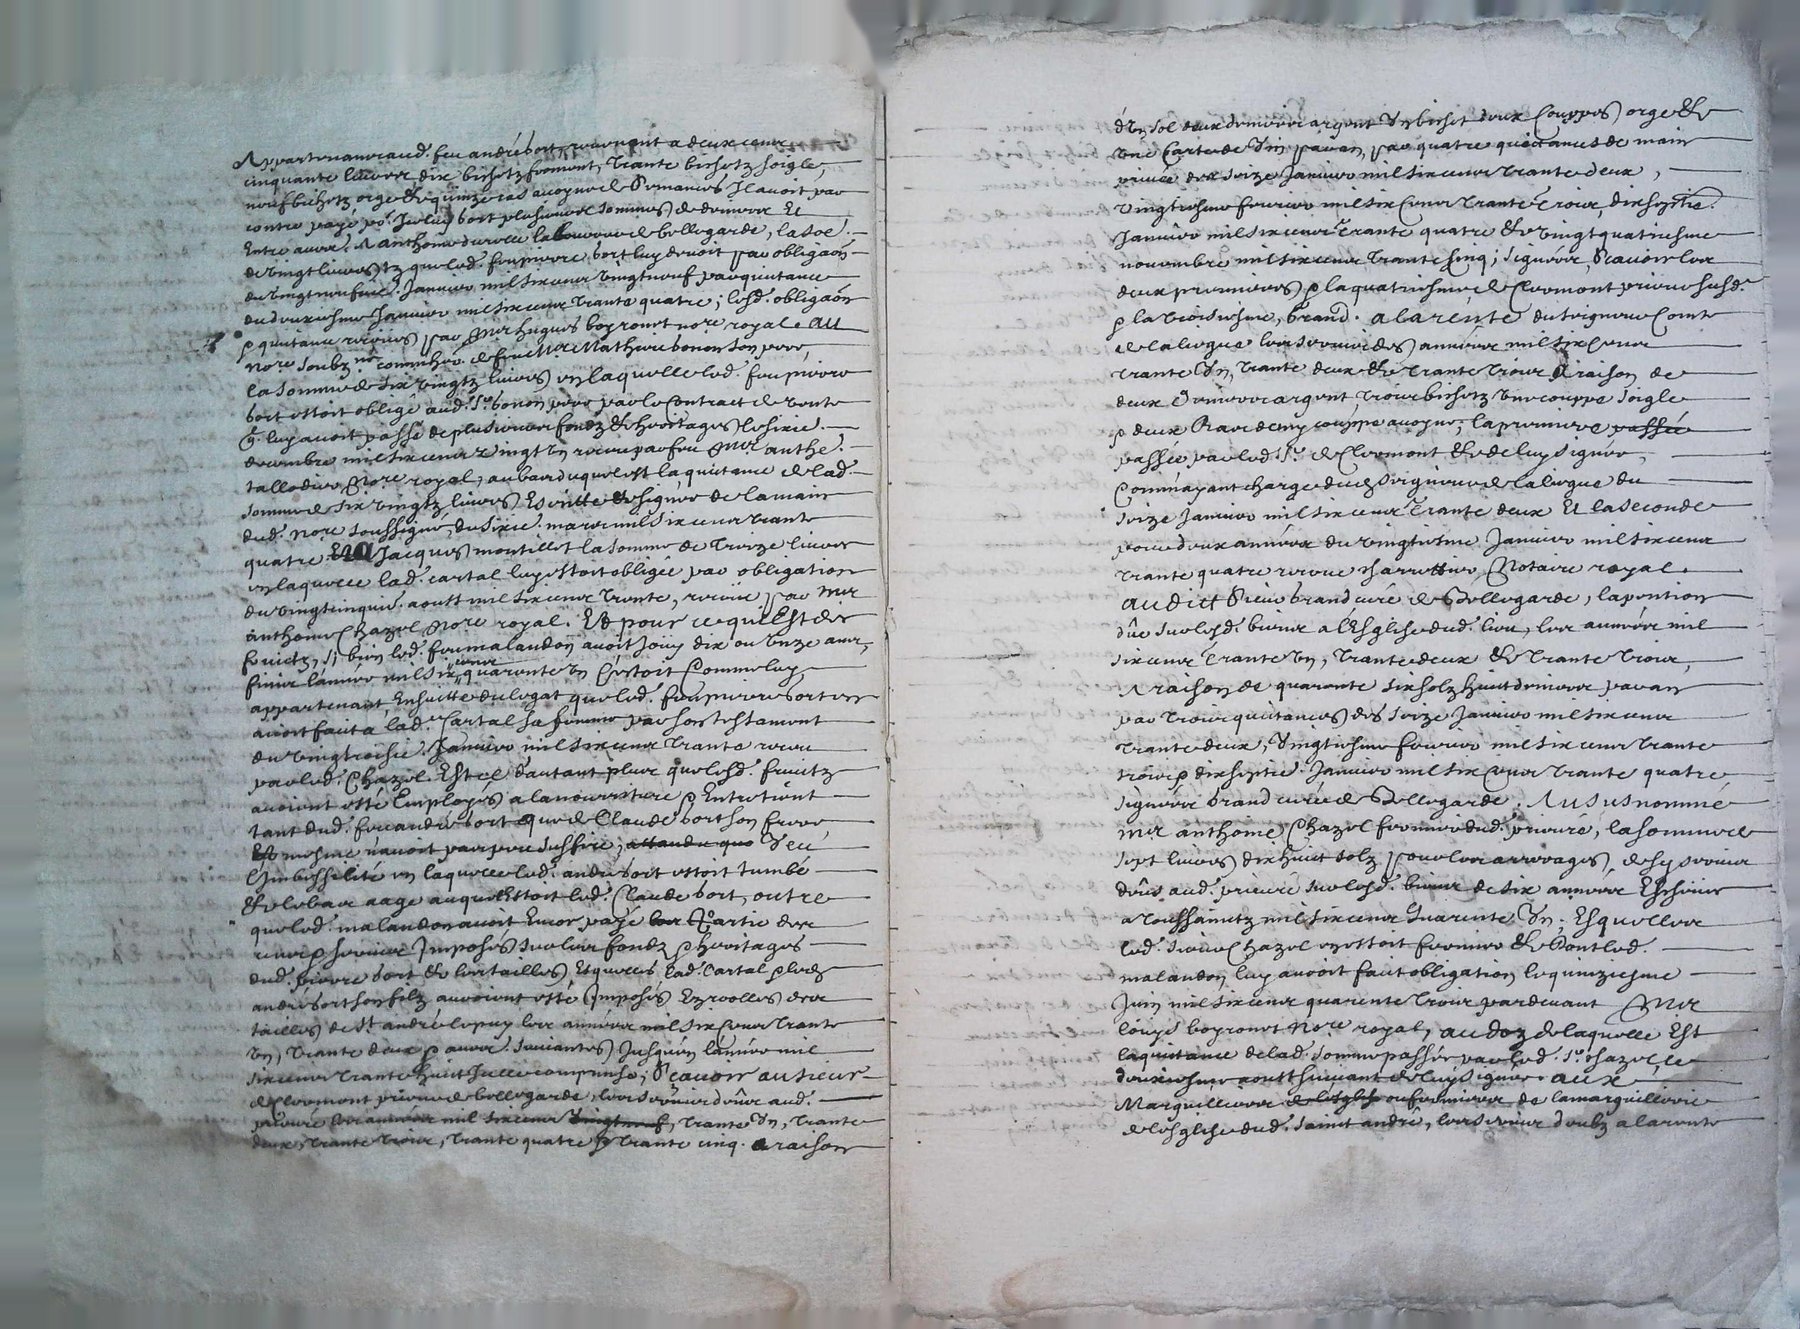 Appartenans aud. feu andré bort, revenant a deux cens
cinquante livres dix bichetz froment, trante bichetz soigle,
neuf bichetz orge et quinze ras avoyne de Romanies Il avoit par
contre payé po.r Iceluy bort plusieurs sommes de deniers Et
Entre autre; A anthome laboureur de bellegarde, la soe.
de vingt livres tz que led. feu pierre bort luy devoit par obligaon
du vingt neufvie. Janvier mil six cens vingt neuf par quitance
du deuxiesme Janvier mil six cens trante quatre; lesd. obligaon
p quitance receues par Mre hugues boyronet nore royal. au
nore soubz.né comm hér. de feu Mre Mathieu bonon son pere,
la somme de six vingtz livres en laquelle led. feu pierre
bort estoit obligé aud. Sr. bonon pere par le Contract de vente
q. luy avoit passé de plusieurs fondz et heritages le sixie.
decembre mil six cens vingt un receu par feu Mre anthe.
nore royal, au bas duquel est la quitance de lad.
somme de six vingtz livres Escritte et signée de la main
dud. nore soussigné, du sixie. mars mil six cens trante
quatre Et a Jacques montillet la somme de treize livres
en laquelle lad. cartal luy estoit obligée par obligation
du vingt cinquie. aoust mil six cens trente, receue par Mre
anthoine Chazel nore royal. Et pour ce qui Est des
fruictz, si bien led. feu malandon avoit Jouy dix ou unze ans,
finis l'année mil six cens quarante un C'estoit Comme luy
appartenant Ensuitte du legat que led. feu pierre bort en
avoit fait a lad. Cartal sa femme par son testament
du vingtroisie. Janvier mil six cens trante receu
par led. Chazel Est il d'autant plus que lesd. fruictz
avoient esté Employés a la nourriture p Entretient
tant dud. feu andré bort que de Claude bort son frere,
Et mesme n'avoit pas peu suffire, attandu que Veu
L'imbessilité en laquelle led. andré bort estoit tumbé
et le bas aage auquel Estoit led. Claude bort, outre
que led. malandon avoit Encor payé les Partie des
cens p servis Imposés sur les fondz p heritages
dud. pierre bort et les tailles Esquelles lad. Cartal p led.
andré bort son filz avoient esté Imposés Ez roolles des
tailles de St andré le puy les années mil six cens trante
un, trante deux p autres suivantes Jusqu'en l'année mil
six cens trante huit Icelle comprinse; Scavoir au sieur
de Clermont prieur de bellegarde, les servis deus aud.
prieuré les années mil six cens vingt neuf, trante un, trante
deux, trante trois, trante quatre p trante cinq. a raison
d'un sol deux deniers argent un bichet deux Couppes orge et
une Carte de vin par an, par quatre quittances de main
privée des seize Janvier mil six cens trante deux,
vingtiesme fevrier mil six cens trante trois, dix septie.
Janvier mil six cens trante quatre et vingt quatriesme
novembre mil six cens trante cinq; signées, Scavoir les
deux premieres p la quatriesme de Clermont prieur susd.
p la troisiesme, brand. a la rente du seigneur Comte
de la liegue les servis des années mil six cens
trante un, trante deux et trante trois a raison de
deux deniers argent, trois bichetz une couppe soigle
p deux Ras demy couppe avoyne; la premiere passée
passée par led. Sr. de Clermont et de luy signée,
Comm ayant charge dud. seigneur de la liegue du
seize Janvier mil six cens trante deux Et la seconde
pour deux années du vingtiesme Janvier mil six cens
trante quatre receue Notaire royal.
audict Sieur brand curé de Bellegarde, la pention
dûe sur lesd. biens a l'Esglise dud. lieu, les années mil
six cens trante un, trante deux et trante trois,
A raison de quarante six solz huit deniers par an
par trois quitances des seize Janvier mil six cens
trante deux, vingtiesme fevrier mil six cens trante
trois p dix septie. Janvier mil six cens trante quatre
signées brand curé de Bellegarde. Au susnommé
Mre anthoine Chazel fermier dud. prieuré, la somme de
sept livres dix huit solz pour les arrerages desd. servis
deûs aud. prieuré sur lesd. biens de six années Escheües
a Toussainctz mil six cens quarente un; Esquelles
led. sieur Chazel en estoit fermier et dont led.
malandon luy avoit fait obligation le quinziesme
Juin mil six cens quarente trois pardevant Mre
louys boyronet Nore royal, au doz de laquelle Est
la quitance de lad. somme passée par led. Sr. Chazel, le
deuxiesme aoust suivant de luy signée. aux
Marguilliers de l'esglise ou fermiers de la marguillerie
de l'esglise dud. saint andré, les servis deubz a la rente